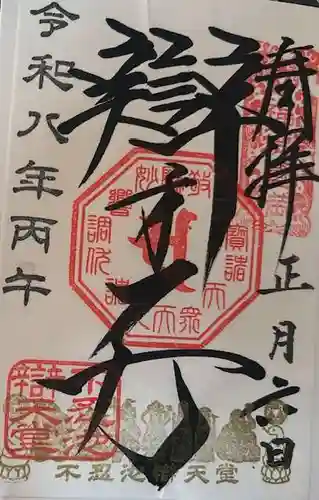 奉拝
正月六日
辯才天
令和八年丙午
不忍池辯天堂
不忍池
辯天堂